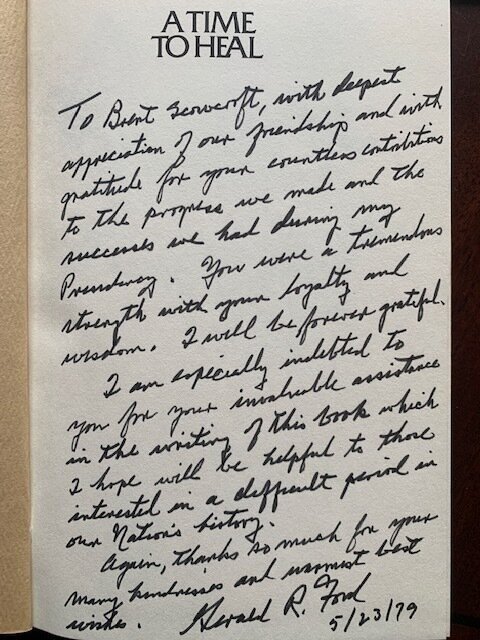 A TIME
TO HEAL
To Brent Scowcroft, with deepest
appreciation of our friendship and with
gratitude for your countless contributions
to the progress we made and the
successes we had during my
Presidency. You were a tremendous
strength with your loyalty and
wisdom. I will be forever grateful.
I am especially indebted to
you for your invaluable assistance
in the writing of this book which
I hope will be helpful to those
interested in a difficult period in
our Nation's history.
Again, thanks so much for your
many kindnesses and warmest best
wishes. Gerald R. Ford
5/23/79